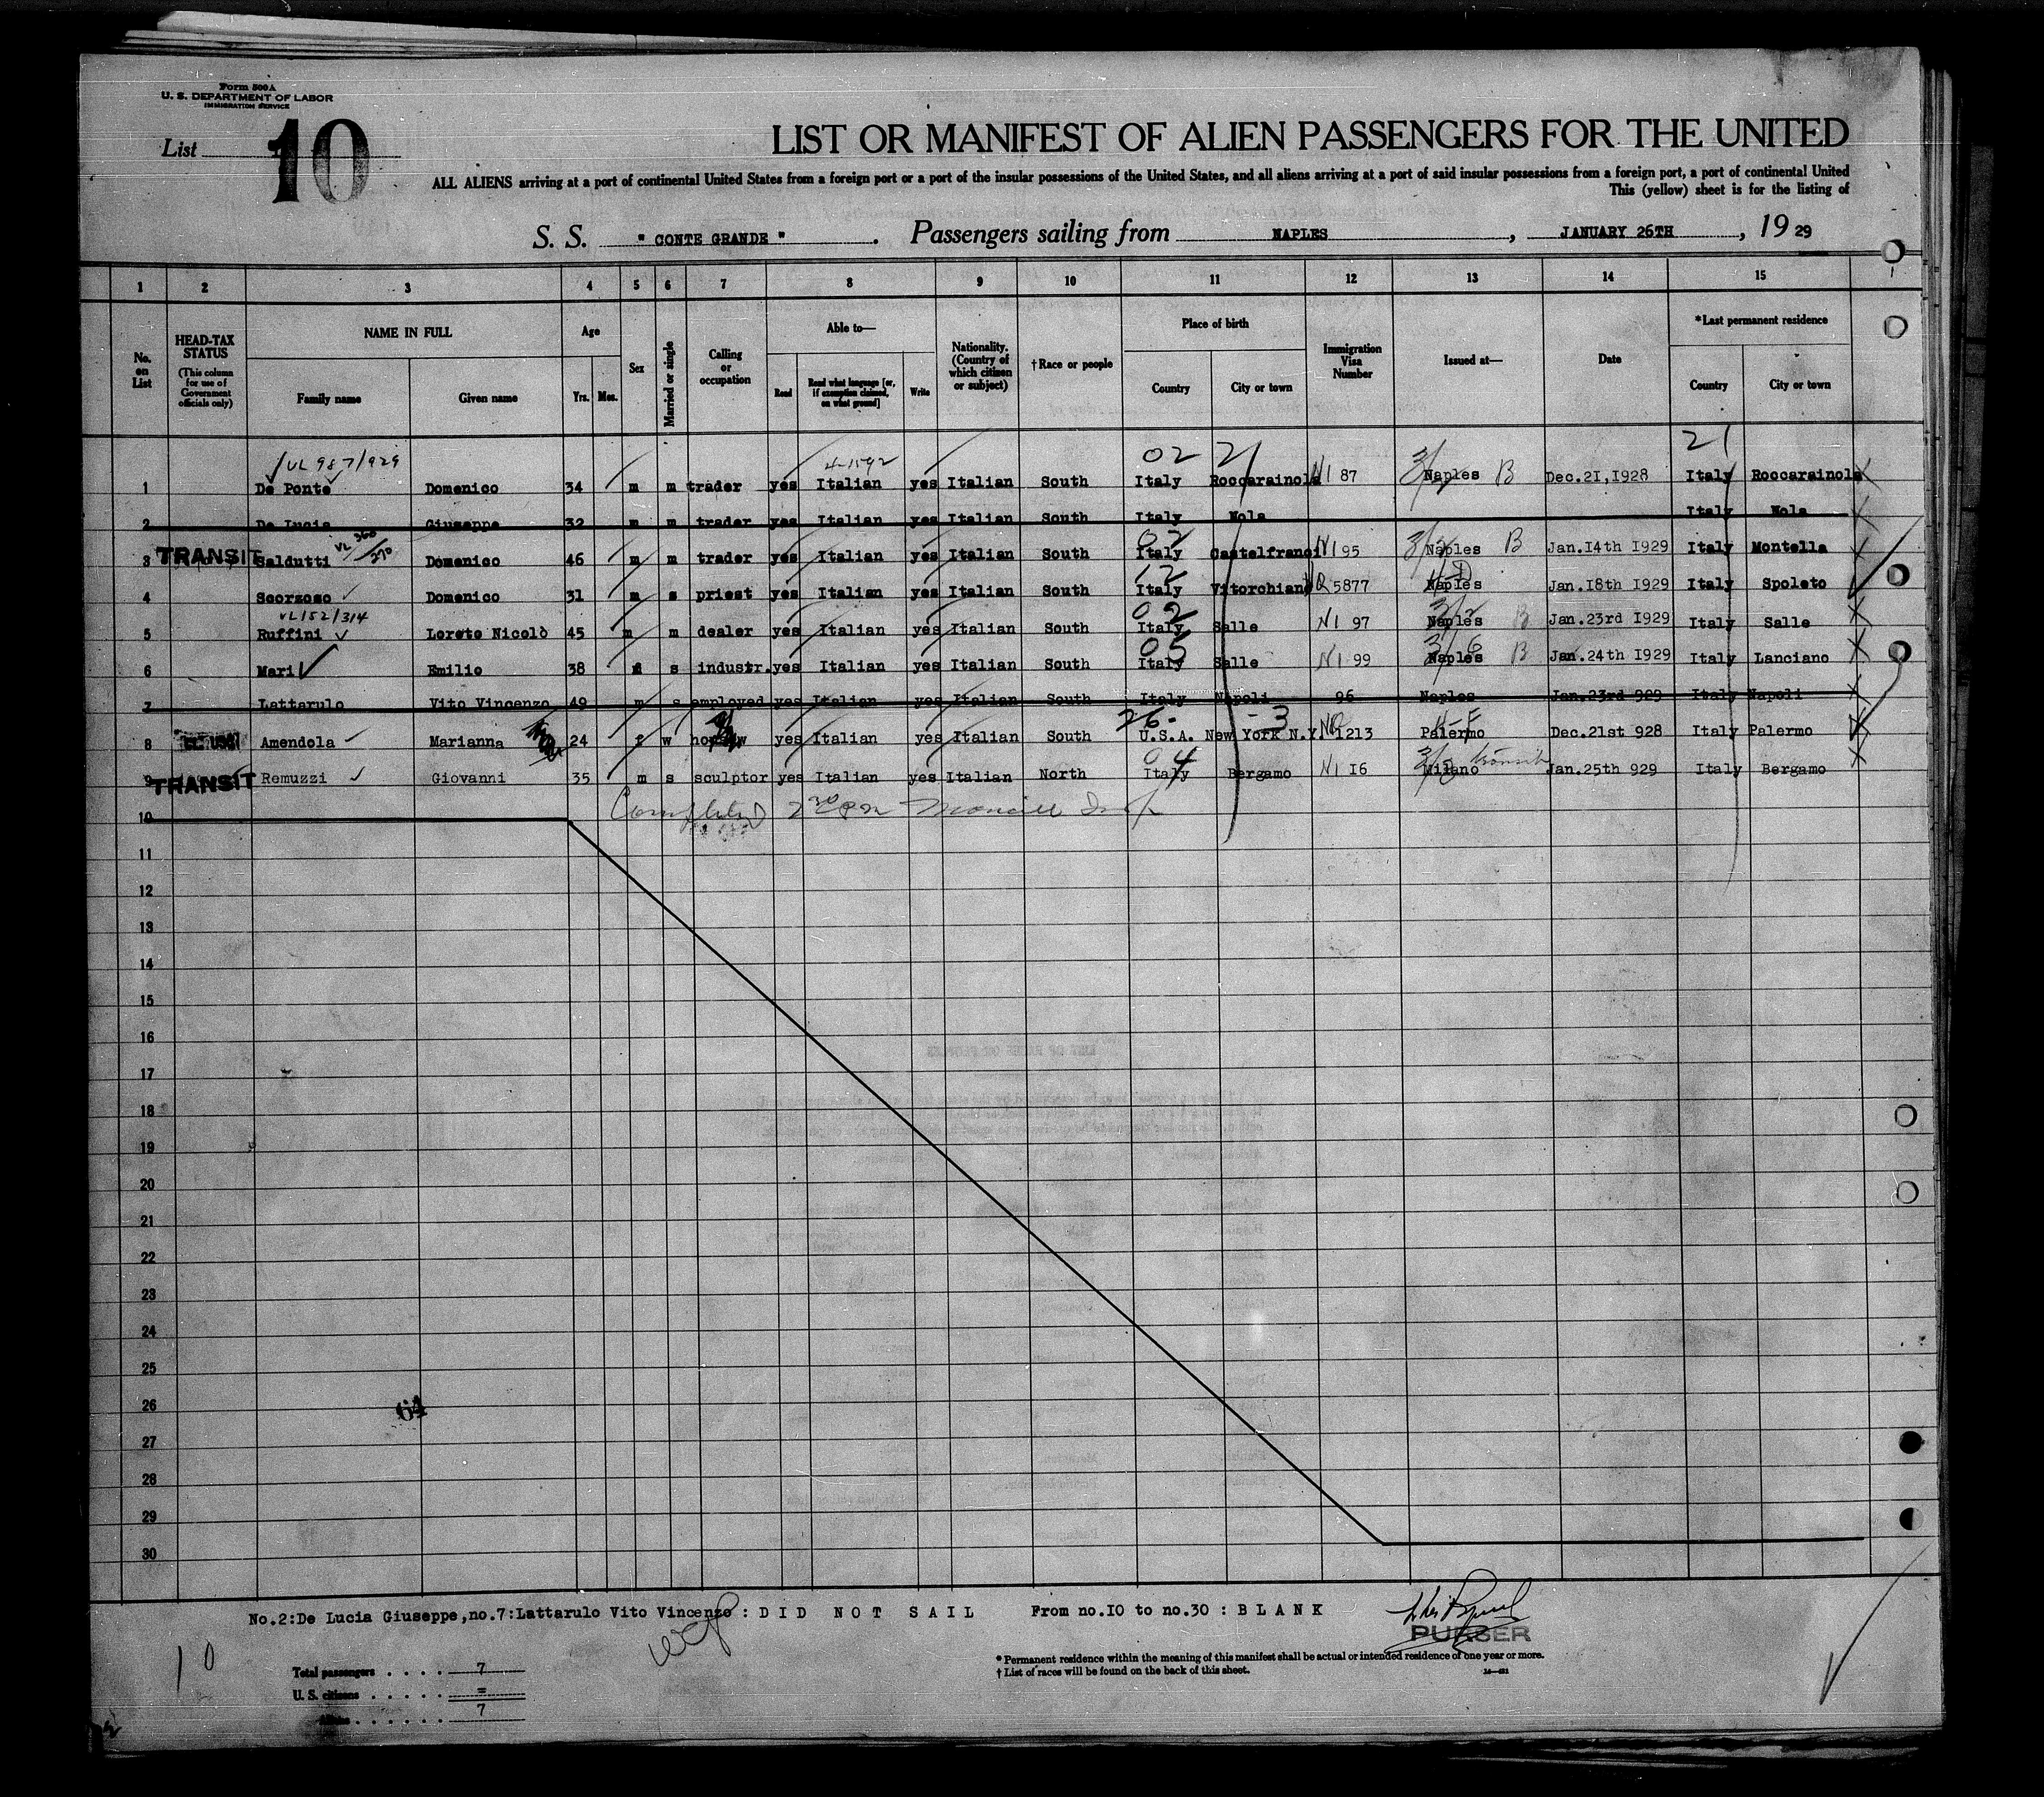 Form 500A
U. S. DEPARTMENT OF LABOR
IMMIGRATION SERVICE
List 10
LIST OR MANIFEST OF ALIEN PASSENGERS FOR THE UNITED
ALL ALIENS arriving at a port of continental United States from a foreign port or a port of the insular possessions of the United States, and all aliens arriving at a port of said insular possessions from a foreign port, a port of continental United
This (yellow) sheet is for the listing of
S. S. " CONTE GRANDE " . Passengers sailing from NAPLES , JANUARY 26TH , 19 29
1 2 3 4 5 6 7 8 9 10 11 12 13 14 15
No. on List
HEAD-TAX STATUS (This column for use of Government officials only)
NAME IN FULL
Family name Given name
Age
Yrs. Mos.
Sex
Married or single
Calling or occupation
Able to—
Read Read what language [or, if exemption claimed, on what ground] Write
Nationality. (Country of which citizen or subject)
†Race or people
Place of birth
Country City or town
Immigration Visa Number
Issued at—
Date
*Last permanent residence
Country City or town
VL 987/929 4-1592 02 21 21
1 De Ponte Domenico 34 m m trader yes Italian yes Italian South Italy Roccarainola N187 Naples B Dec.2I,1928 Italy Roccarainola
2 De Lucia Giuseppe 32 m m trader yes Italian yes Italian South Italy Nola Italy Nola
VL 360/270 02
3 TRANSIT Saldutti Domenico 46 m m trader yes Italian yes Italian South Italy Castelfranci N195 Naples B Jan.I4th I929 Italy Montella
12
4 Scorzoso Domenico 31 m s priest yes Italian yes Italian South Italy Vitorchiano 5877 Naples Jan.I8th I929 Italy Spoleto
VL152/314 02
5 Ruffini Loreto Nicolò 45 m m dealer yes Italian yes Italian South Italy Salle N1 97 Naples B Jan.23rd I929 Italy Salle
05
6 Mari Emilio 38 m s industr. yes Italian yes Italian South Italy Salle N1 99 Naples B Jan.24th I929 Italy Lanciano
7 Lattarulo Vito Vincenzo 49 m s employed yes Italian yes Italian South Italy Napoli 96 Naples Jan.23rd 929 Italy Napoli
26- -3
8 Amendola Marianna 24 f w yes Italian yes Italian South U.S.A. New York N.Y. 1213 Palermo Dec.21st 928 Italy Palermo
04
9 TRANSIT Remuzzi Giovanni 35 m s sculptor yes Italian yes Italian North Italy Bergamo N1 I6 Milano transit Jan.25th 929 Italy Bergamo
10 Completed
11
12
13
14
15
16
17
18
19
20
21
22
23
24
25
26
64
27
28
29
30
No.2:De Lucia Giuseppe,no.7:Lattarulo Vito Vincenzo : D I D N O T S A I L From no.I0 to no.30 : B L A N K
PURSER
10
Total passengers . . . . 7
U. S. citizens . . . . . =
Aliens . . . . . . 7
* Permanent residence within the meaning of this manifest shall be actual or intended residence of one year or more.
† List of races will be found on the back of this sheet.